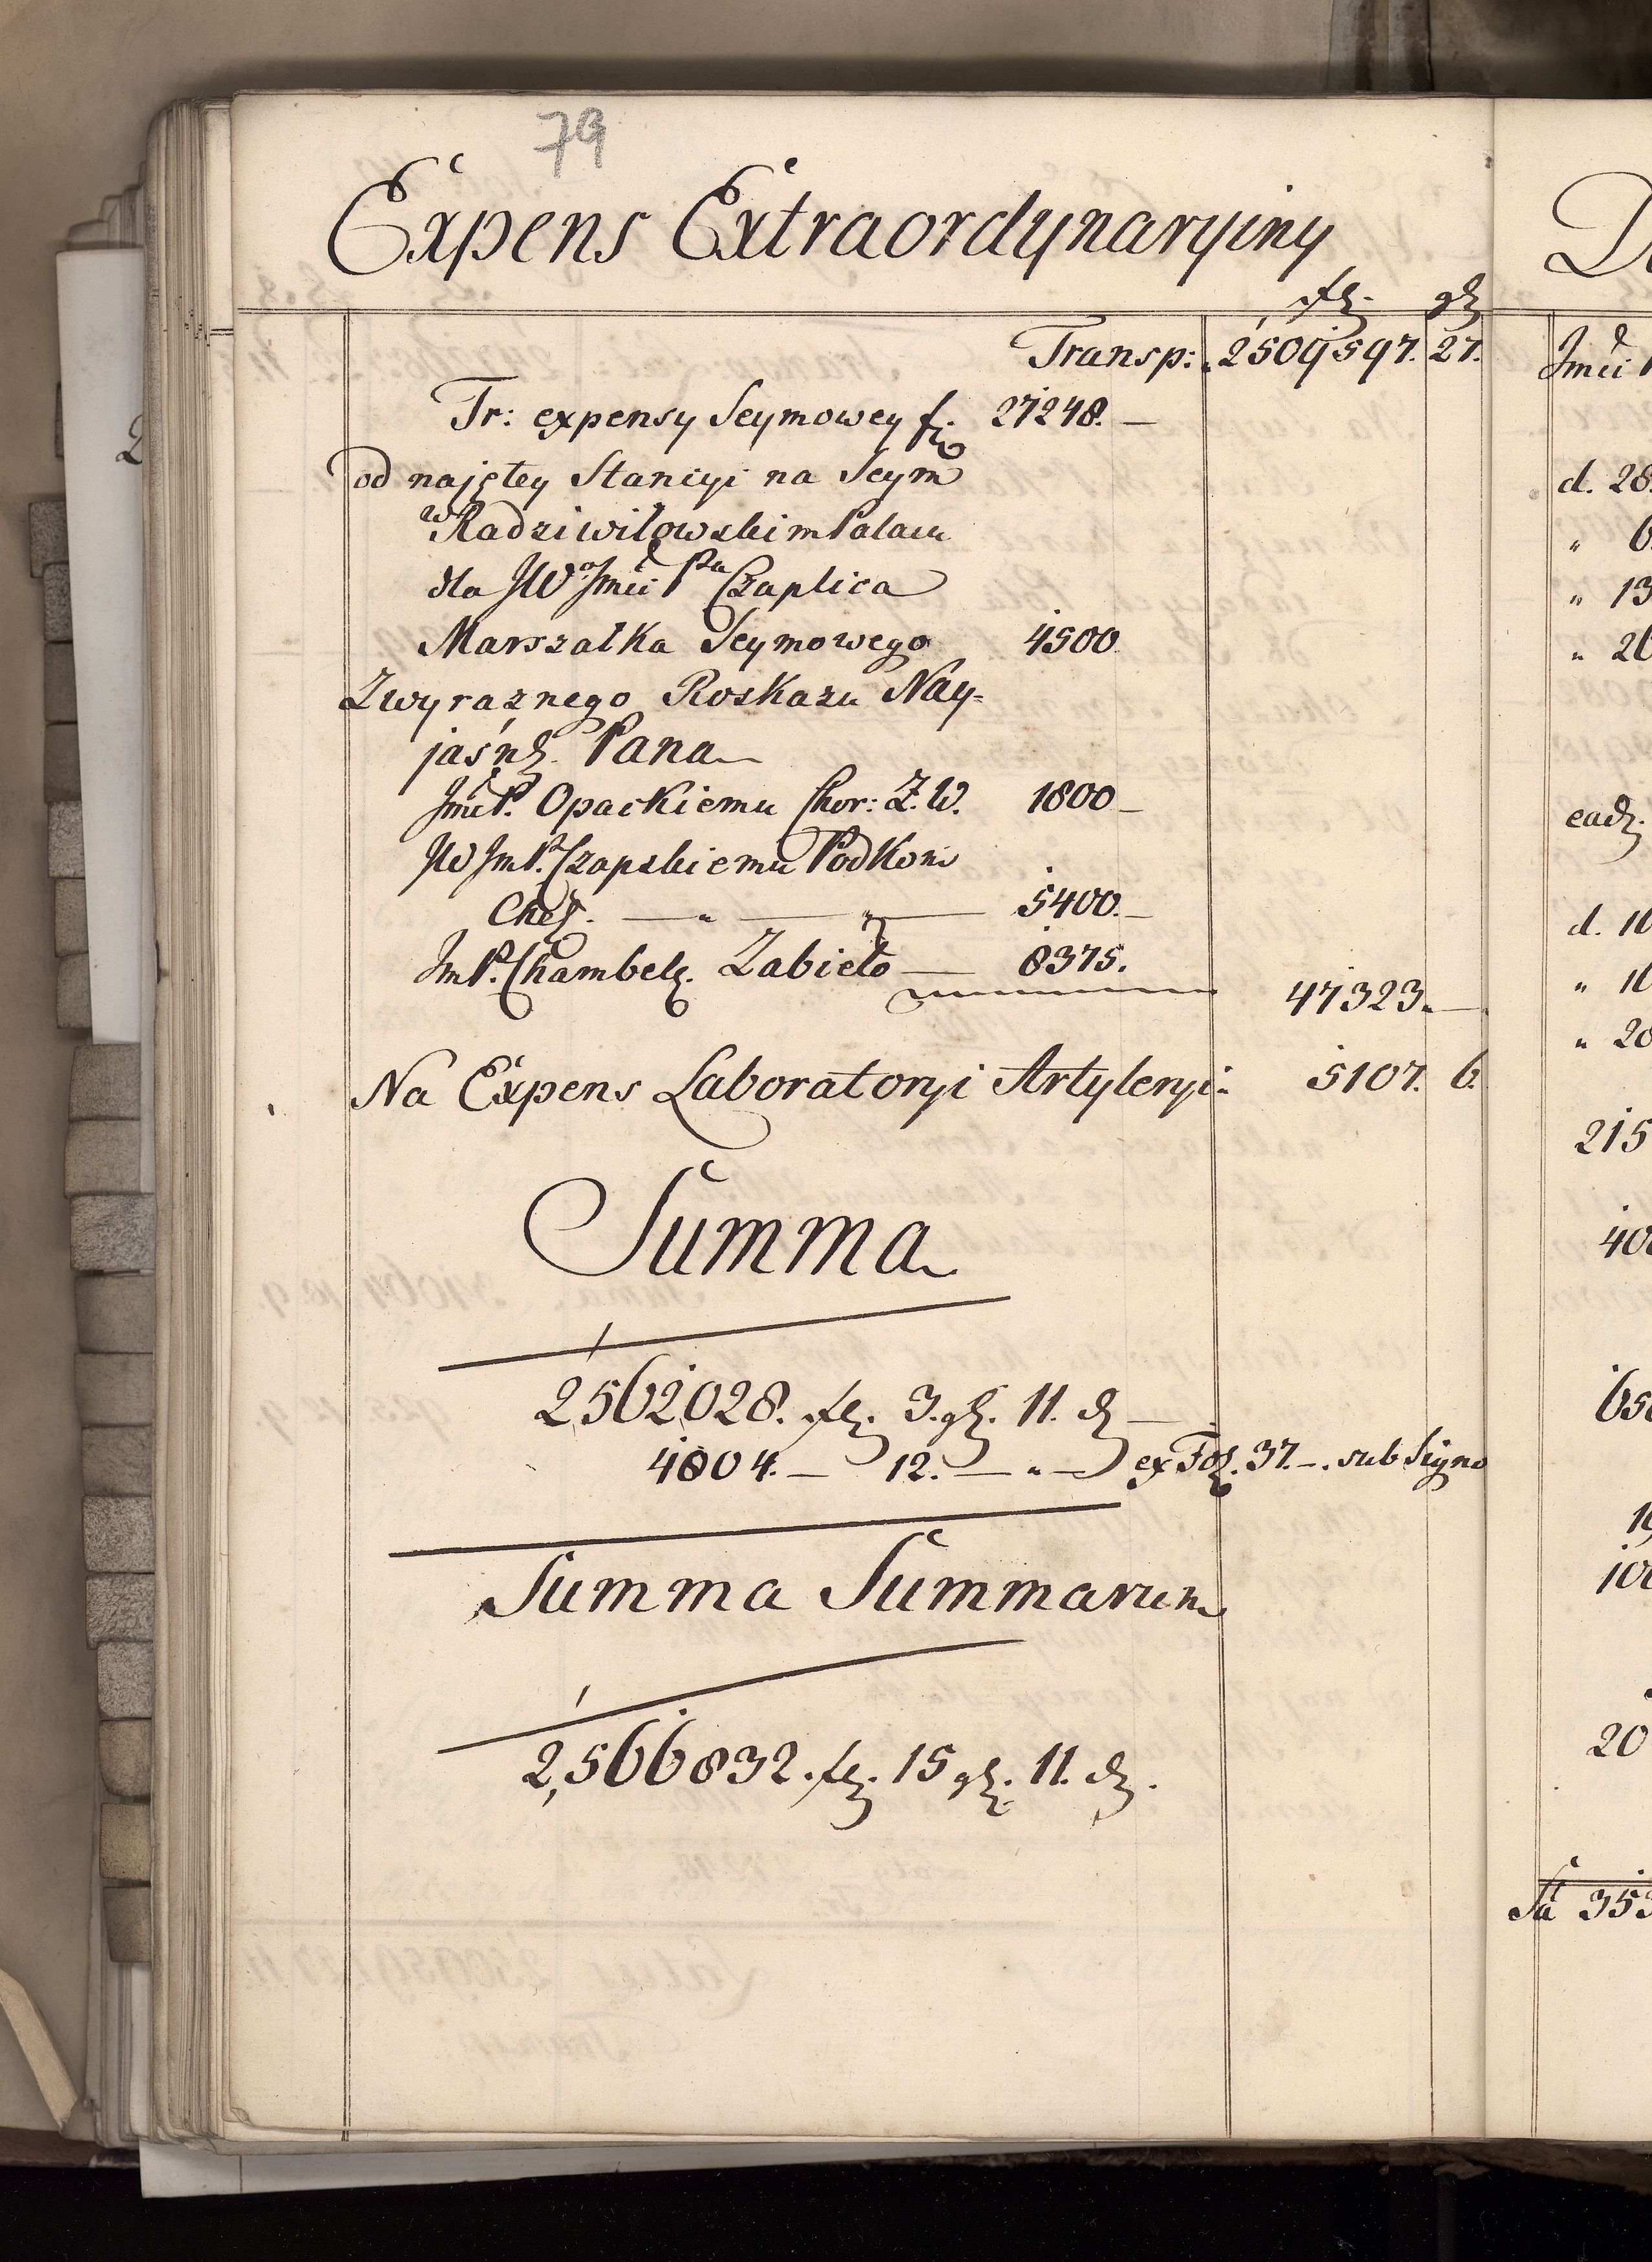 79
Expens Extraordynaryiny
fl. gl
Transp: 2509597. 27.
Tr: expensy Seymowey f. 27248. —
od najętey Stancyi na Seym
w Radziwiłowskim Palacu
dla JW Jmci Pa Czaplica
Marszałka Seymowego 4500
Z wyraznego Roskazu Nay=
jaśn. Pana
Jmci P. Opackiemu Chor: Z. W. 1800 —
JW Jm P. Czapskiemu Podkom
Cheł. — " — " — 5400. —
Jm P. Chambel. Zabieło — 8375.
47323. —
Na Expens Laboratoryi Artyleryi. 5107. 6.
Summa
2562028. fl. 3. gl. 11. d —
4804. — 12. — " — ex Fol. 37. —. sub Signo
Summa Summarum
2,566832. fl. 15 gl. 11. d.
Jmci
d. 28
" 6
" 13
" 20
ead.
d. 10
" 10
" 20
215
400
650
10
100
20
Sa 353